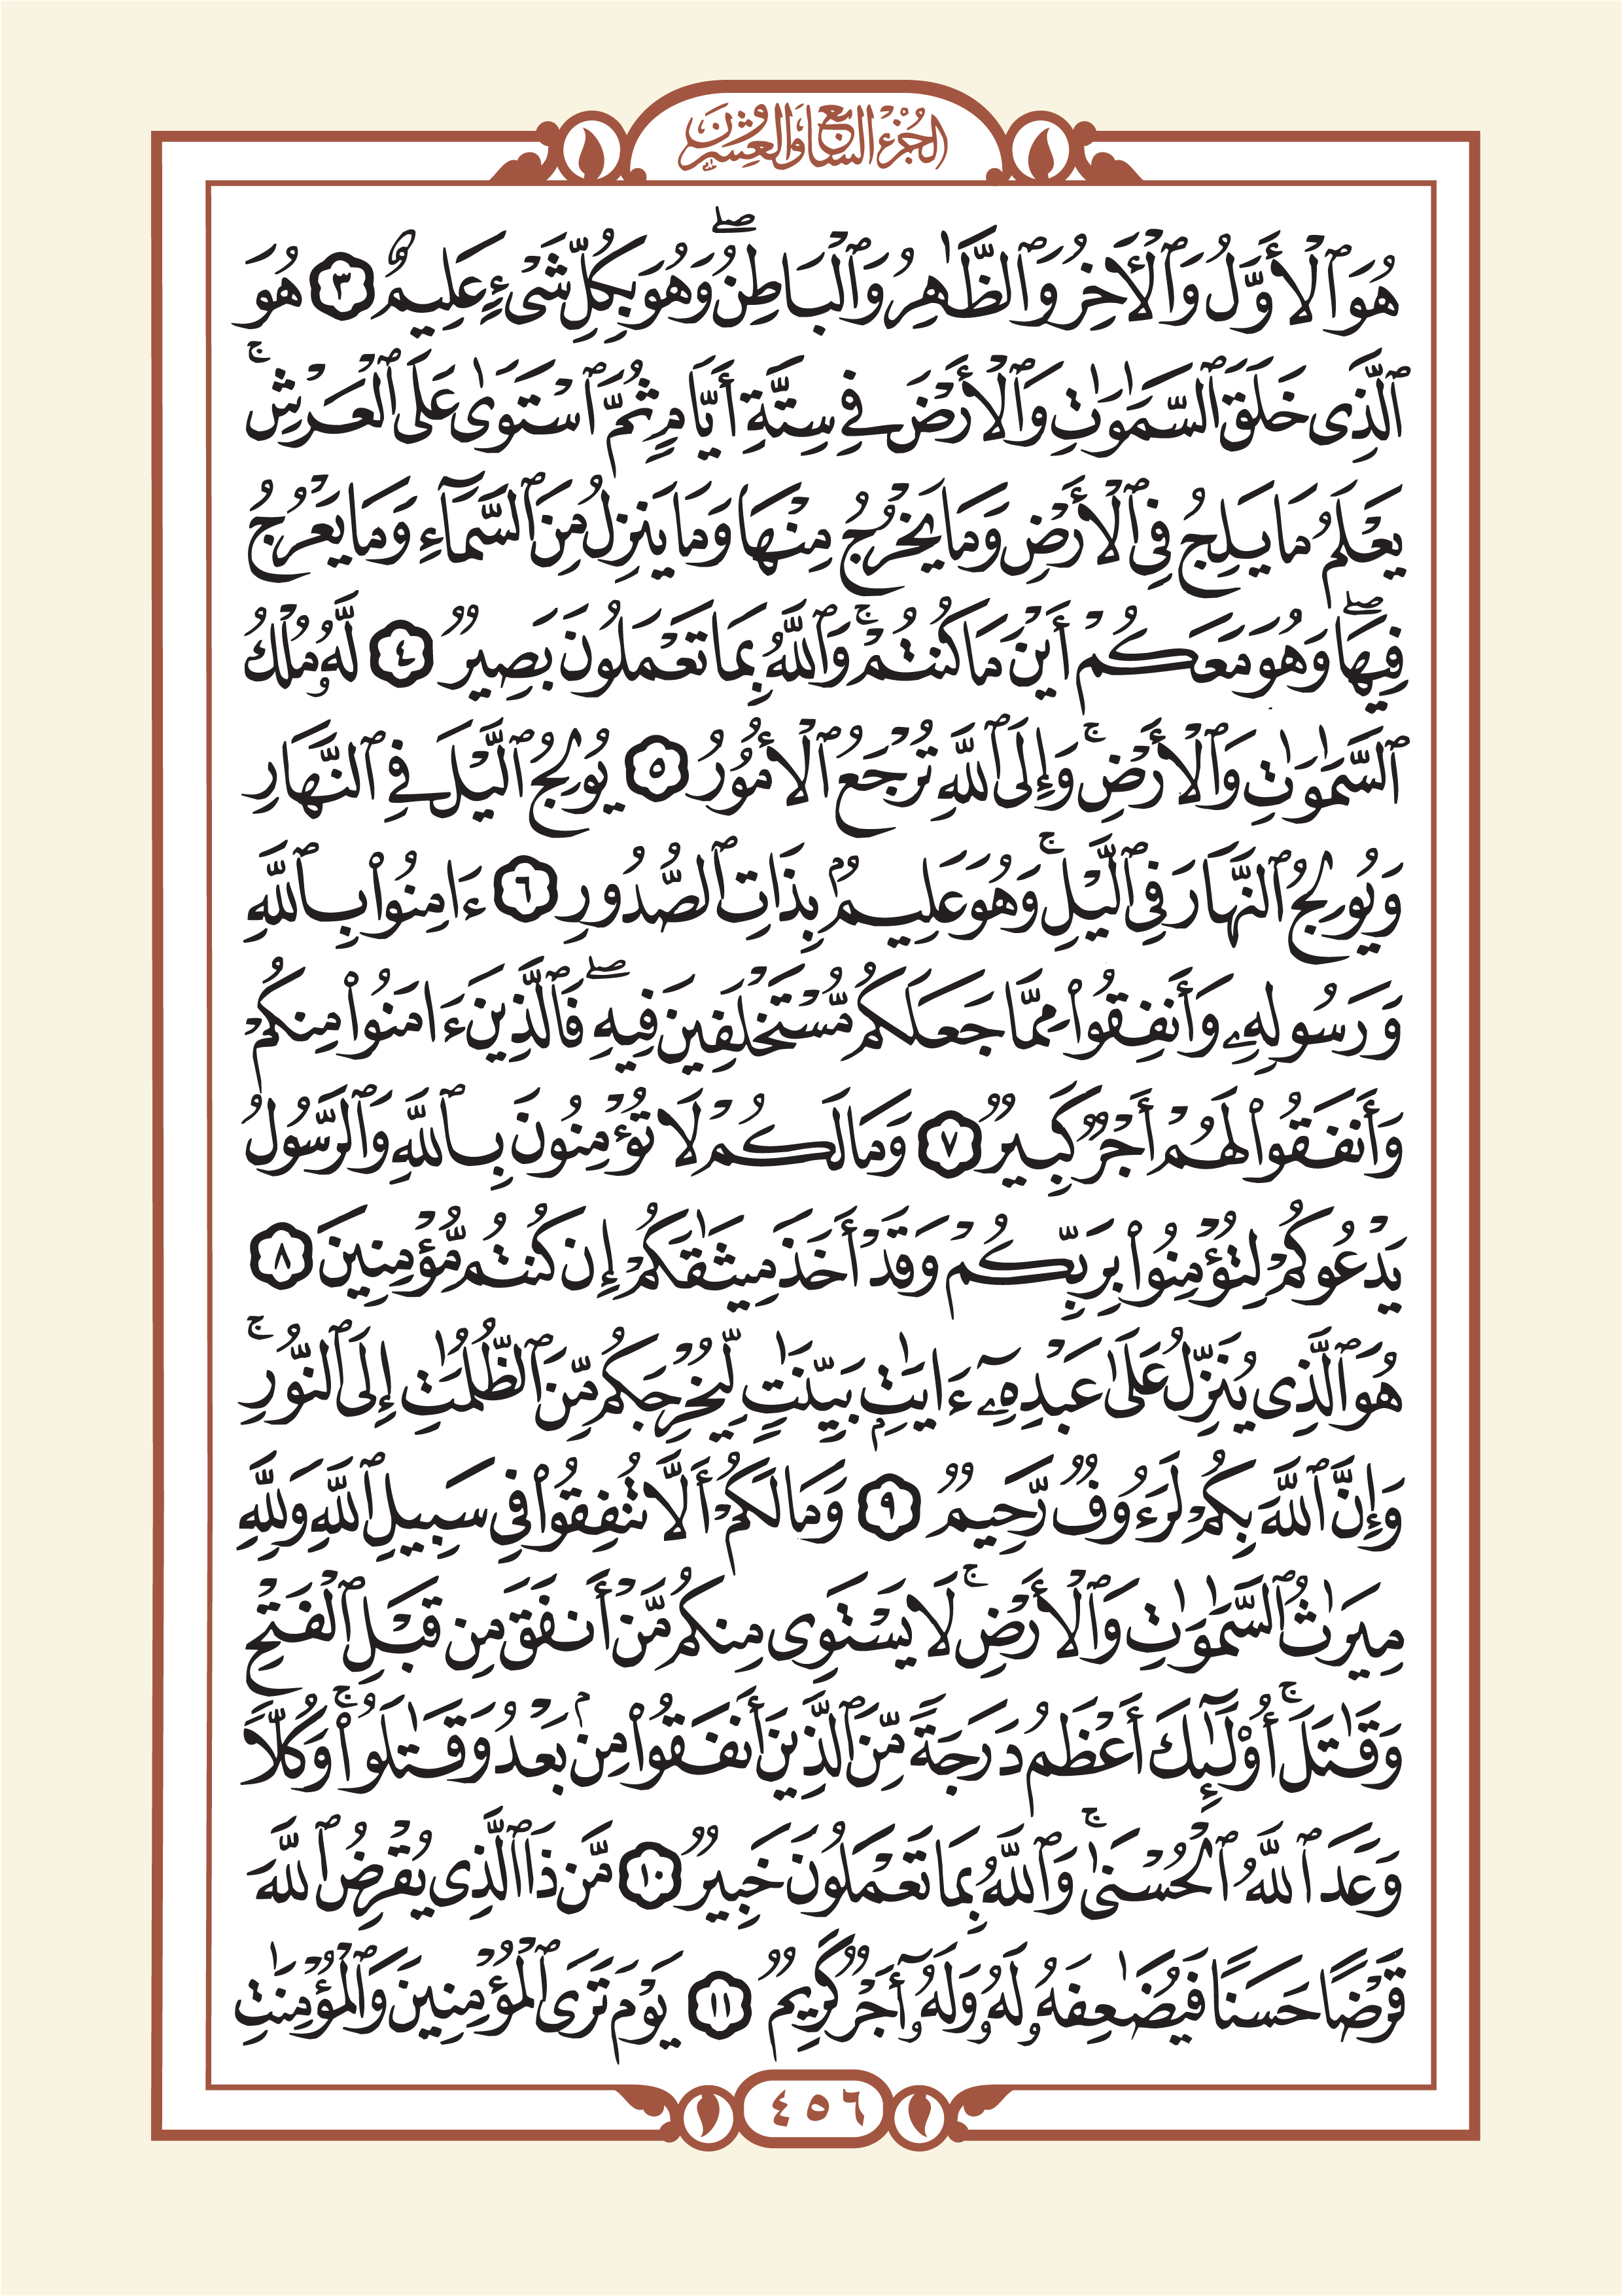 الجزء السابع والعشرون
هُوَ ٱلْأَوَّلُ وَٱلْأٓخِرُ وَٱلظَّٰهِرُ وَٱلْبَاطِنُ ۖ وَهُوَ بِكُلِّ شَىْءٍ عَلِيمٌ ٣ هُوَ
ٱلَّذِى خَلَقَ ٱلسَّمَٰوَٰتِ وَٱلْأَرْضَ فِى سِتَّةِ أَيَّامٍ ثُمَّ ٱسْتَوَىٰ عَلَى ٱلْعَرْشِ ۚ
يَعْلَمُ مَا يَلِجُ فِى ٱلْأَرْضِ وَمَا يَخْرُجُ مِنْهَا وَمَا يَنزِلُ مِنَ ٱلسَّمَآءِ وَمَا يَعْرُجُ
فِيهَا ۖ وَهُوَ مَعَكُمْ أَيْنَ مَا كُنتُمْ ۚ وَٱللَّهُ بِمَا تَعْمَلُونَ بَصِيرٌ ٤ لَّهُۥ مُلْكُ
ٱلسَّمَٰوَٰتِ وَٱلْأَرْضِ ۚ وَإِلَى ٱللَّهِ تُرْجَعُ ٱلْأُمُورُ ٥ يُولِجُ ٱلَّيْلَ فِى ٱلنَّهَارِ
وَيُولِجُ ٱلنَّهَارَ فِى ٱلَّيْلِ ۚ وَهُوَ عَلِيمٌۢ بِذَاتِ ٱلصُّدُورِ ٦ ءَامِنُوا۟ بِٱللَّهِ
وَرَسُولِهِۦ وَأَنفِقُوا۟ مِمَّا جَعَلَكُم مُّسْتَخْلَفِينَ فِيهِ ۖ فَٱلَّذِينَ ءَامَنُوا۟ مِنكُمْ
وَأَنفَقُوا۟ لَهُمْ أَجْرٌ كَبِيرٌ ٧ وَمَا لَكُمْ لَا تُؤْمِنُونَ بِٱللَّهِ وَٱلرَّسُولُ
يَدْعُوكُمْ لِتُؤْمِنُوا۟ بِرَبِّكُمْ وَقَدْ أَخَذَ مِيثَٰقَكُمْ إِن كُنتُم مُّؤْمِنِينَ ٨
هُوَ ٱلَّذِى يُنَزِّلُ عَلَىٰ عَبْدِهِۦٓ ءَايَٰتٍۭ بَيِّنَٰتٍ لِّيُخْرِجَكُم مِّنَ ٱلظُّلُمَٰتِ إِلَى ٱلنُّورِ ۚ
وَإِنَّ ٱللَّهَ بِكُمْ لَرَءُوفٌ رَّحِيمٌ ٩ وَمَا لَكُمْ أَلَّا تُنفِقُوا۟ فِى سَبِيلِ ٱللَّهِ وَلِلَّهِ
مِيرَٰثُ ٱلسَّمَٰوَٰتِ وَٱلْأَرْضِ ۚ لَا يَسْتَوِى مِنكُم مَّنْ أَنفَقَ مِن قَبْلِ ٱلْفَتْحِ
وَقَٰتَلَ ۚ أُو۟لَٰٓئِكَ أَعْظَمُ دَرَجَةً مِّنَ ٱلَّذِينَ أَنفَقُوا۟ مِنۢ بَعْدُ وَقَٰتَلُوا۟ ۚ وَكُلًّا
وَعَدَ ٱللَّهُ ٱلْحُسْنَىٰ ۚ وَٱللَّهُ بِمَا تَعْمَلُونَ خَبِيرٌ ١٠ مَّن ذَا ٱلَّذِى يُقْرِضُ ٱللَّهَ
قَرْضًا حَسَنًا فَيُضَٰعِفَهُۥ لَهُۥ وَلَهُۥٓ أَجْرٌ كَرِيمٌ ١١ يَوْمَ تَرَى ٱلْمُؤْمِنِينَ وَٱلْمُؤْمِنَٰتِ
٤٥٦